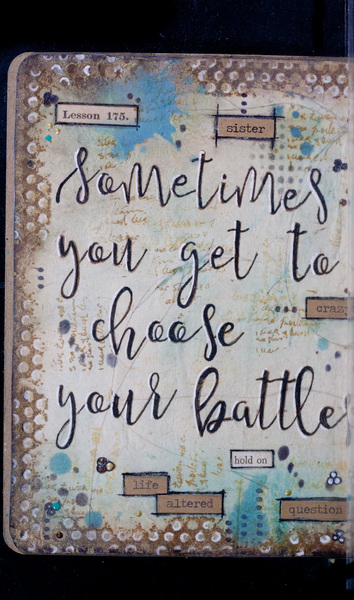 Lesson 175.
sister
Sometimes
you get to
crazy
choose
your battle
hold on
life
altered
question